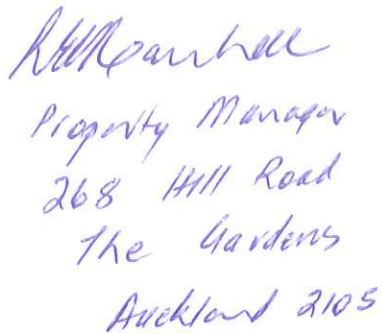 Property Manager
268 Hill Road
The Gardens
Auckland 2105